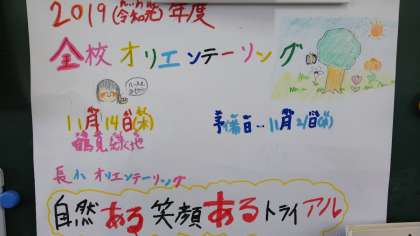 2019(令和元)年度
全校オリエンテーリング
11月14日(木)
予備日…11月21日(木)
鶴見緑地
長れオリエンテーリング
自然ある笑顔あるトライアル